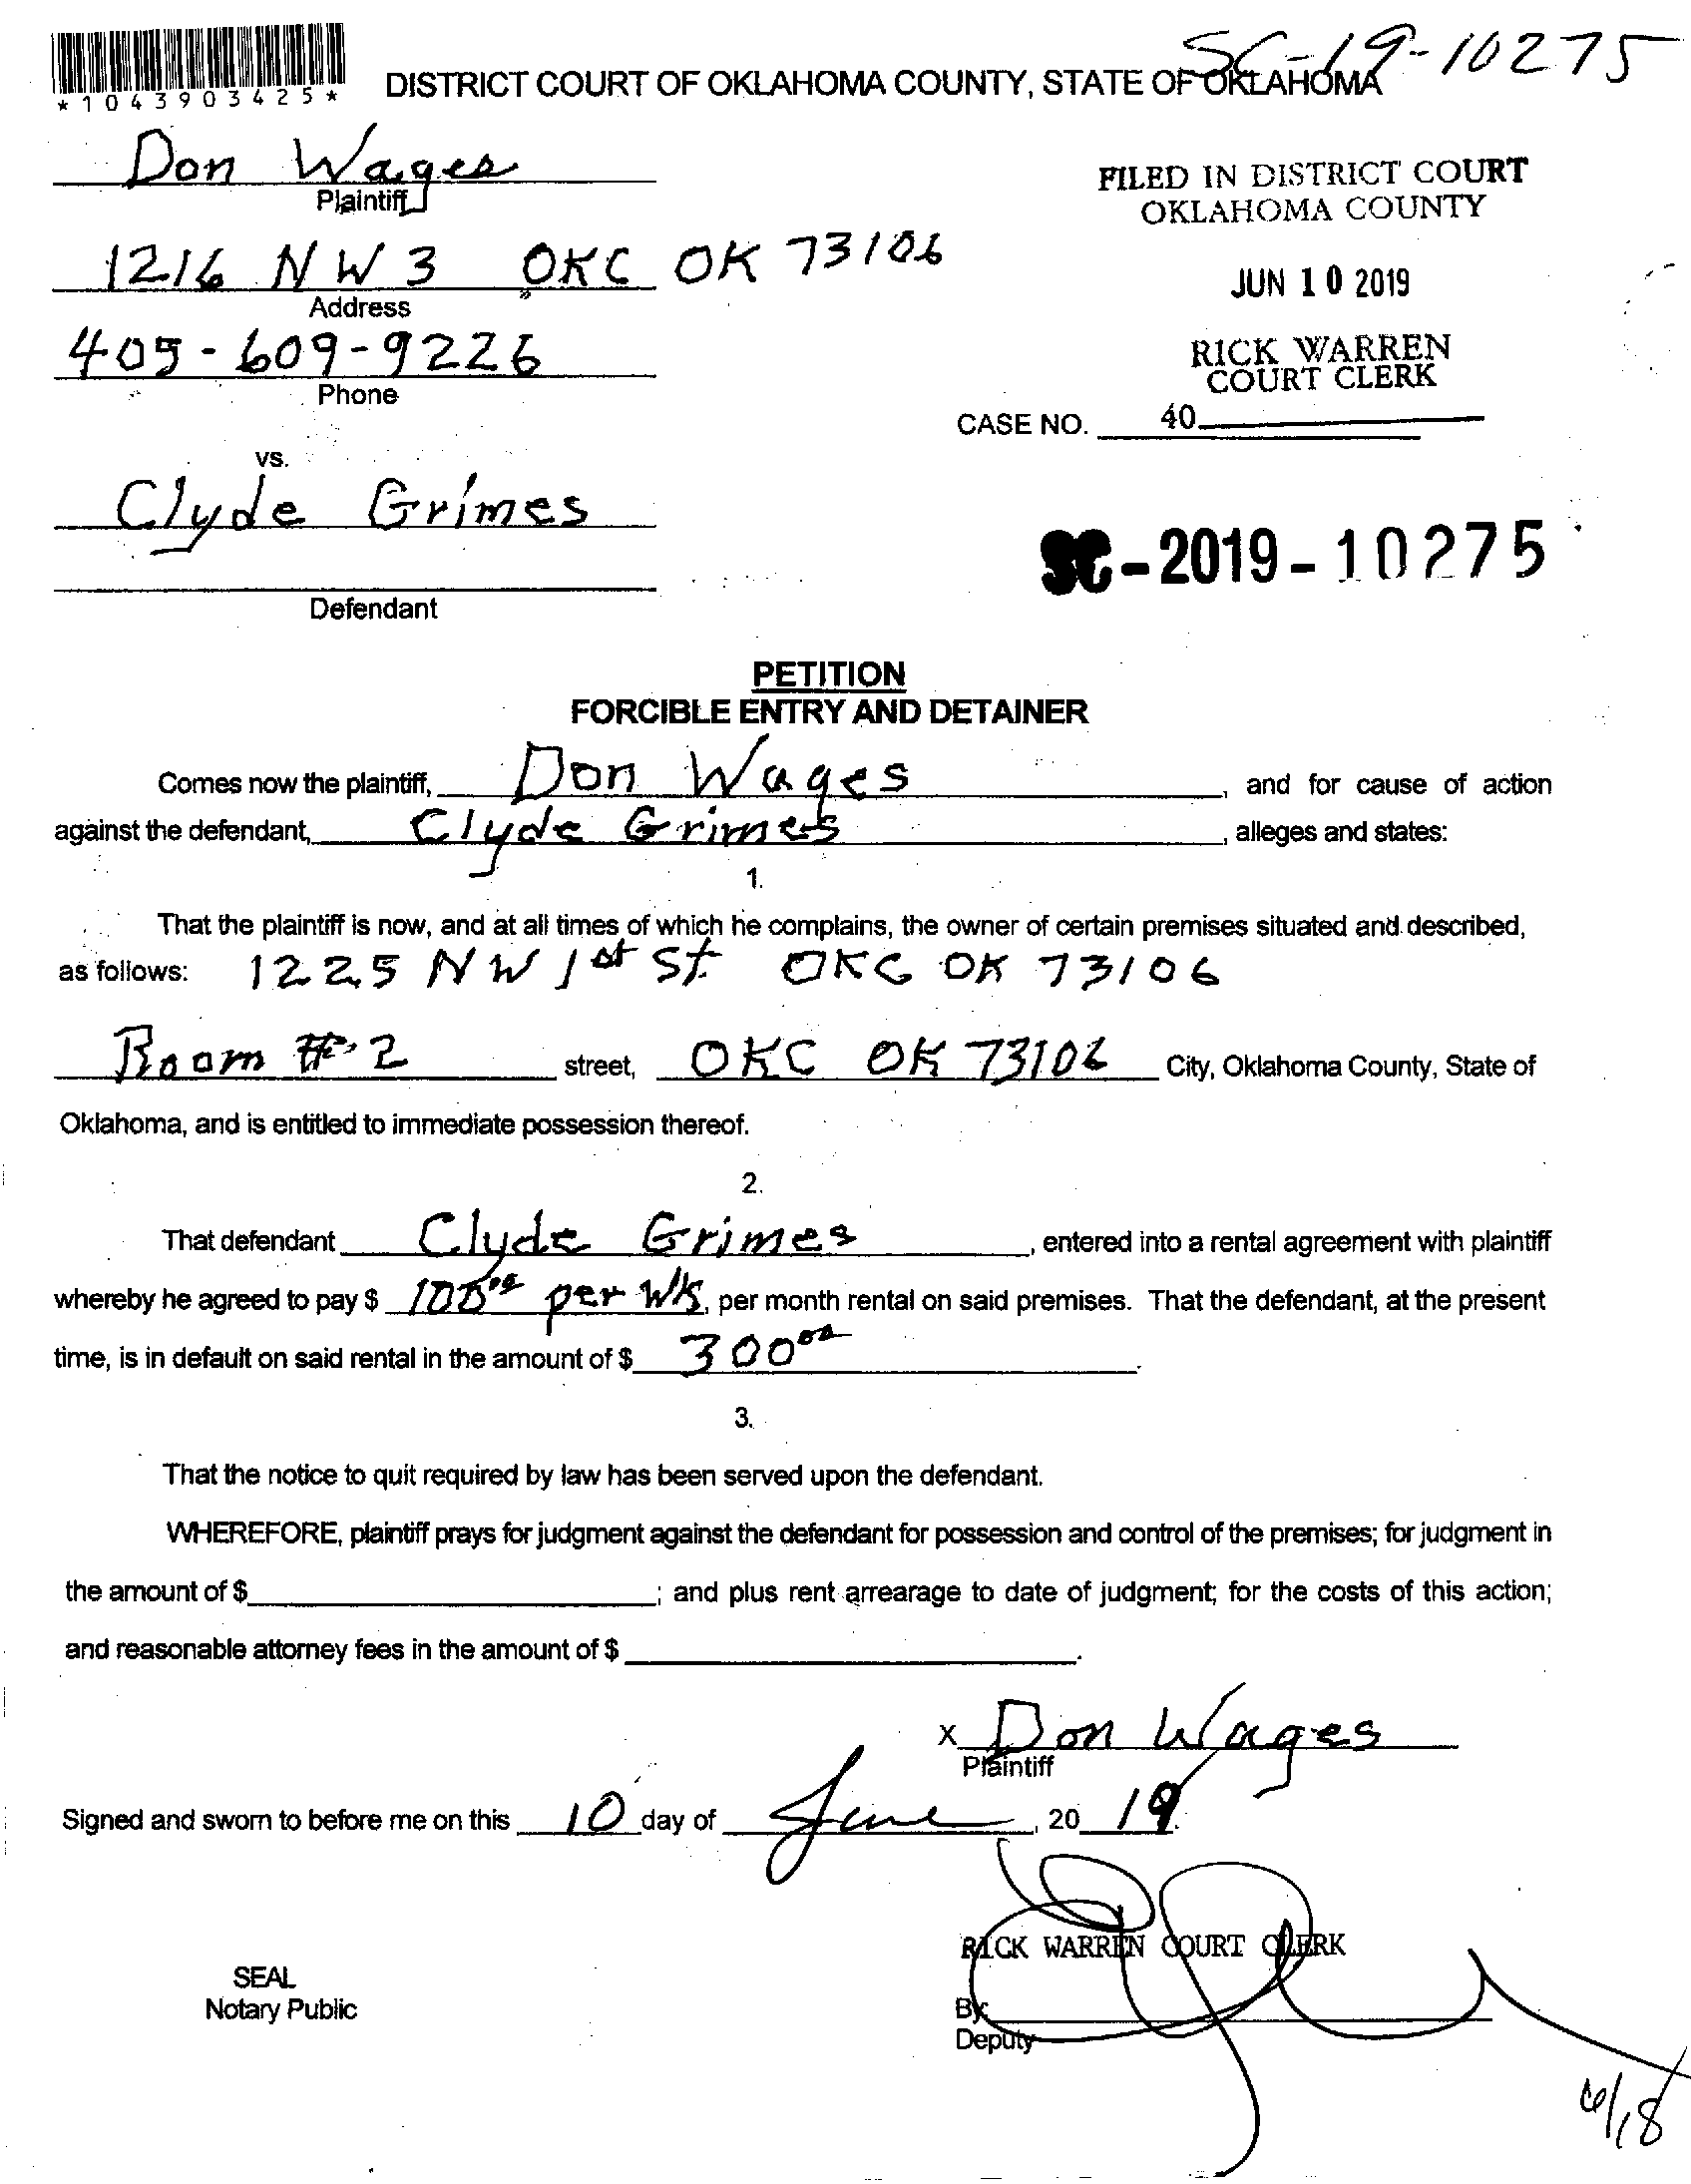 SC-19-10275
*1043903425*
DISTRICT COURT OF OKLAHOMA COUNTY, STATE OF OKLAHOMA
Don Wages
Plaintiff
FILED IN DISTRICT COURT
OKLAHOMA COUNTY
1216 NW 3 OKC OK 73106
Address
JUN 10 2019
405-609-9226
Phone
RICK WARREN
COURT CLERK
CASE NO. 40
vs.
Clyde Grimes
SC-2019-10275
Defendant
PETITION
FORCIBLE ENTRY AND DETAINER
Comes now the plaintiff, Don Wages, and for cause of action
against the defendant, Clyde Grimes, alleges and states:
1.
That the plaintiff is now, and at all times of which he complains, the owner of certain premises situated and described,
as follows: 1225 NW 1st St. OKC OK 73106
Room # 2 street, OKC OK 73106 City, Oklahoma County, State of
Oklahoma, and is entitled to immediate possession thereof.
2.
That defendant Clyde Grimes, entered into a rental agreement with plaintiff
whereby he agreed to pay $ 100.00 per Wk, per month rental on said premises. That the defendant, at the present
time, is in default on said rental in the amount of $ 300.00.
3.
That the notice to quit required by law has been served upon the defendant.
WHEREFORE, plaintiff prays for judgment against the defendant for possession and control of the premises; for judgment in
the amount of $ ; and plus rent arrearage to date of judgment; for the costs of this action;
and reasonable attorney fees in the amount of $ .
X Don Wages
Plaintiff
Signed and sworn to before me on this 10 day of June, 20 19.
RICK WARREN COURT CLERK
SEAL
Notary Public
By:
Deputy
6/18